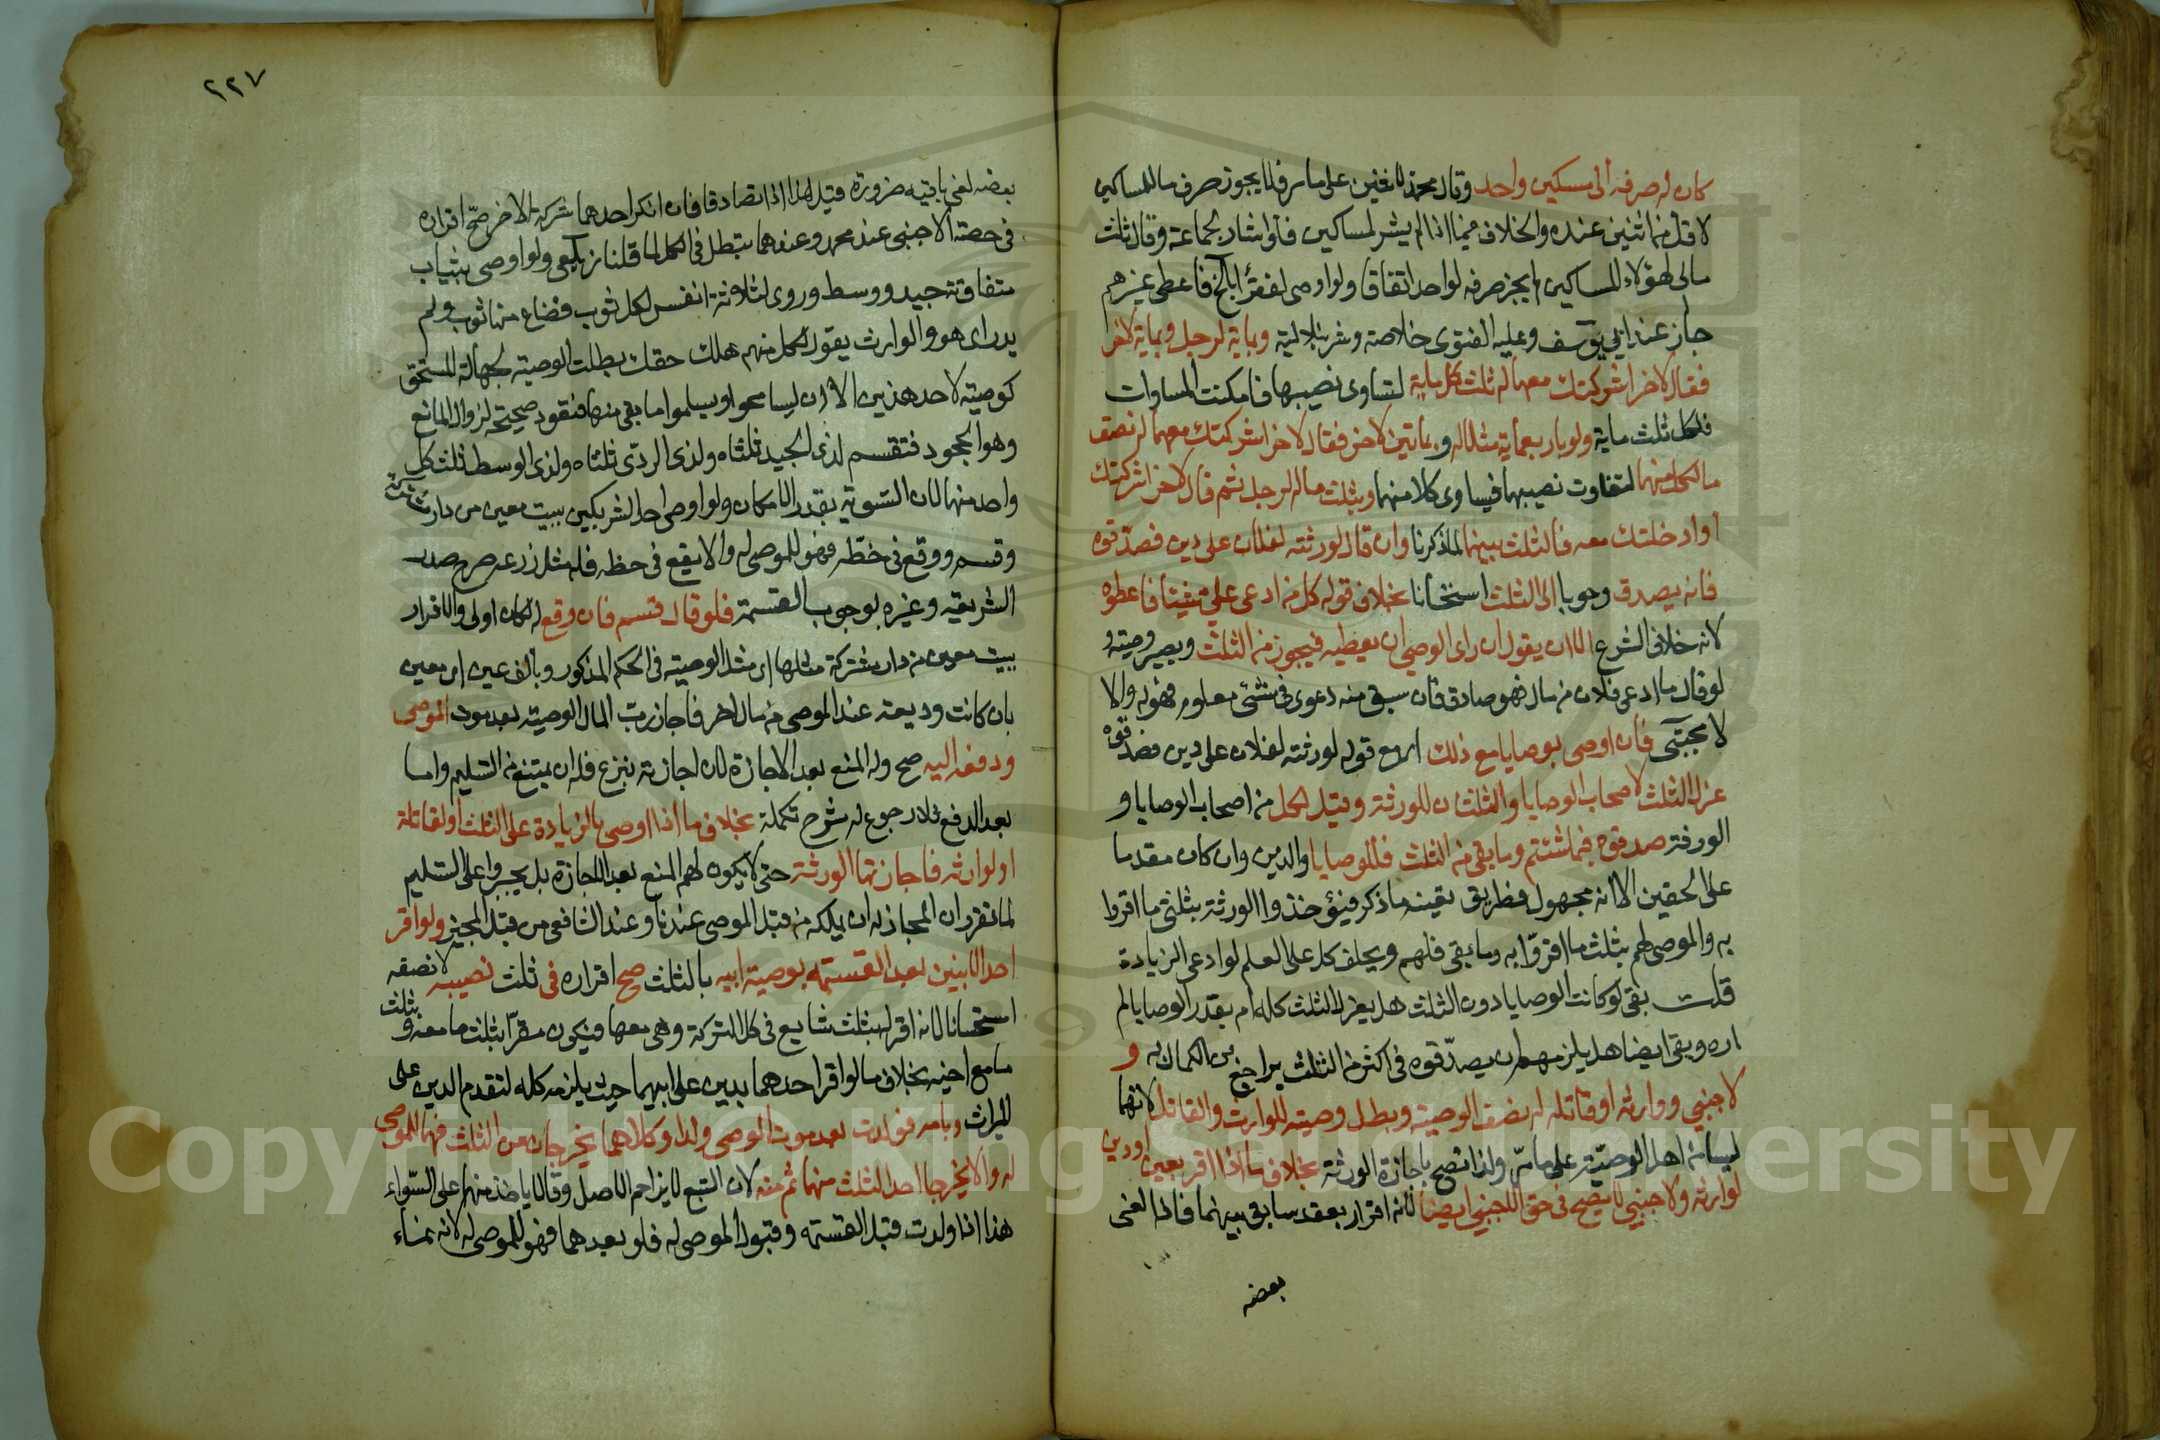 كان له صرفه الى مسكين واحد وقال محمد لاثنين على ما مر فلا يجوز صرف ما للمساكين
لاقل من اثنين عنده والخلاف فيما اذا لم يشر لمساكين فلو اشار بجماعة وقال ثلث
مالي لهؤلاء المساكين لم يجز صرفه لواحد اتفاقا ولو اوصى لفقراء بلخ فاعطى غيرهم
جاز عند ابي يوسف وعليه الفتوى خلاصة وشرنبلالية وبماية لرجل وبماية لاخر
فقال لاخر اشركتك معهما له ثلث كل ماية لتساوى نصيبهما فامكنت المساوات
فلكل ثلث ماية ولو باربعماية مثلا له وبمايتين لاخر فقال لاخر اشركتك معهما له نصف
ما لكل منهما لتفاوت نصيبهما فيساوى كلا منهما وبثلث ماله لرجل ثم قال لاخر اشركتك
او ادخلتك معه فالثلث بينهما لما ذكرنا وان قال لورثته لفلان على دين فصدقوه
فانه يصدق وجوبا الى الثلث استحسانا بخلاف قوله كل من ادعى علي شيئا فاعطوه
لانه خلاف الشرع الا ان يقول ان راى الوصي ان يعطيه فيجوز من الثلث ويصير وصيته و
لو قال ما ادعى فلان من مال فهو صادق فان سبق منه دعوى في شئ معلوم فهو له والا
لا مجتبى فان اوصى بوصايا مع ذلك اى مع قوله لورثته لفلان على دين فصدقوه
عزل الثلث لاصحاب الوصايا والثلثان للورثة وقيل لكل من اصحاب الوصايا و
الورثة صدقوه فيما شئتم وما بقى من الثلث فللوصايا والدين وان كان مقدما
على الحقين الا انه مجهول فطريق تعينه ما ذكر فيؤخذ والورثة بثلثي ما اقروا
به والموصى لهم بثلث ما اقروا به وما بقى فلهم ويحلف كل على العلم لو ادعى الزيادة
قلت بقى لو كانت الوصايا دون الثلث هل يعزل الثلث كله ام بقدر الوصايا لم
اره وبقى ايضا هل يلزمهم ان يصدقوه في اكثر من الثلث يراجع ابن الكمال به و
لاجنبي ووارثه او قاتله له نصف الوصية وبطل وصيته للوارث والقاتل لانهما
ليسا من اهل الوصية على ما مر ولذا تصح باجازة الورثة بخلاف ما اذا اقر بعين او دين
لوارثه ولاجنبي لا يصح في حق الاجنبي ايضا لانه اقرار بعقد سابق بينهما فاذا لغى
بعضه
٢٢٧
بعضه لغى باقيه ضرورة قيل هذا اذا تصادقا فان انكر احدهما شركة الاخر صح اقراره
في حصة الاجنبي عند محمد وعندهما تبطل في الكل لما قلنا زيلعي ولو اوصى بثياب
متفاوتة جيد ووسط وروى لثلاثة انفس لكل ثوب فضاع منها ثوب ولم
يدر اى هو والوارث يقول لكل منهم هلك حقك بطلت الوصية لجهالة المستحق
كوصيته لاحد هذين الا ان يسامحوا ويسلموا ما بقى منها فتعود صحيحة لزوال المانع
وهو الجحود فتقسم لذى الجيد ثلثاه ولذى الردى ثلثاه ولذى الوسط ثلث كل
واحد منهما لان التسوية بقدر الامكان ولو اوصى احد الشريكين ببيت معين من دار مشتركة
وقسم ووقع في حظه فهو للموصى له والا يقع في حظه فله مثل ذرعه صرح صدر
الشريعة وغيره بوجوب القسمة فلو قال قسم فان وقع له لكان اولى والاقرار
ببيت معين من دار مشتركة مثلها اى مثل الوصية في الحكم المذكور وبالف عين اى معين
بان كانت وديعة عند الموصى من مال اخر فاجاز رب المال الوصية بعد موت الموصى
ودفعه اليه صح وله المنع بعد الاجازة لان اجازته تبرع فله ان يمتنع من التسليم واما
بعد الدفع فلا رجوع له شرح تكملة بخلاف ما اذا اوصى بالزيادة على الثلث او لقاتله
او لوارثه فاجازتها الورثة حتى لا يكون لهم المنع بعد الاجازة بل يجبروا على التسليم
لما تقرر ان المجاز له ان يملكه من قبل الموصى عندنا وعند الشافعي من قبل المجيز ولو اقر
احد الابنين بعد القسمة بوصية ابيه بالثلث صح اقراره في ثلث نصيبه لا نصفه
استحسانا لانه اقر له بثلث شايع في كل التركة وهي معهما فيكون مقرا بثلث ما معه وبثلث
ما مع اخيه بخلاف ما لو اقر احدهما بدين على ابيهما حيث يلزمه كله لتقدم الدين على
الميراث وبامه فولدت بعد موت الموصى ولدا وكلاهما يخرجان من الثلث فهما للموصى
له والا يخرجا اخذ الثلث منهما ثم منه لان التبع لا يزاحم الاصل وقالا ياخذ منهما على السواء
هذا اذا ولدت قبل القسمة وقبول الموصى له فلو بعدهما فهو للموصى له لانه نماء
Copyright © King Saud University